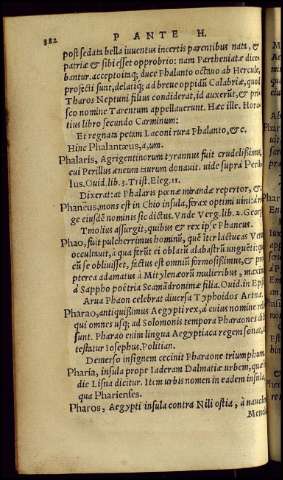 382 P ANTE H.
post sedata bella iuuentus incertis parentibus nata, &
patriæ & sibi esset opprobrio: nam Partheniatæ dice
bantur. accepto itaq; duce Phalanto octauo ab Hercule,
profecti sunt, delatiq; ad breue oppidũ Calabriæ, quod
Tharos Neptuni filius condiderat, id auxerũt, & pri
sco nomine Tarentum appellauerunt. Hæc ille. Hora
tius libro secundo Carminum:
Et regnata petam Laconi rura Phalanto, &c.
Hinc Phalantæus, a, um.
Phalaris, Agrigentinorum tyrannus fuit crudelissimus,
cui Perillus æneum taurum donauit. uide supra Peril-
lus. Ouid. lib. 3. Trist. Eleg. 11.
Dixerat: at Phalaris pœnæ mirande repertor, &
Phaneus, mons est in Chio insula, ferax optimi uini:
ge eiusdẽ nominis sic dictus. Vnde Verg. lib. 2. Georg
Tmolius assurgit, quibus & rex ipse Phaneus.
Phao, fuit pulcherrimus homo, quẽ iter lactucas Venus
occultauit, à qua fertur ei oblatũ alabastrũ unguẽti: quo
cũ se obliuisset, factus est omniũ formosissimus, & pro
pterea adamatus à Mitylenæorũ mulieribus, maxime
à Sappho poëtria Scamãdronimæ filia. Ouid. in Epist.
Arua Phaon celebrat diuersa Typhoidos Aetnæ.
Pharao, antiquissimus Aegypti rex, à cuius nomine re
qui omnes usq; ad Solomonis tempora Pharaones di
sunt. Pharao enim lingua Aegyptiaca regem sonat,
testatur Iosephus. Politian.
Demerso insignem cecinit Pharaone triumphum
Pharia, insula prope Iaderam Dalmatiæ urbem, quæ
die Lisna dicitur. Item urbis nomen in eadem insula,
qua Pharienses.
Pharos, Aegypti insula contra Nili ostia, à nauclero
Mene